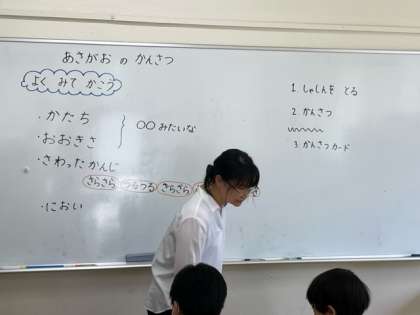 あさがお の かんさつ
よく みて かこう
・かたち
・おおきさ
○○みたいな
・さわったかんじ
さらさら つるつる ざらざら
・におい
1. しゃしんを とる
2. かんさつ
3. かんさつカード